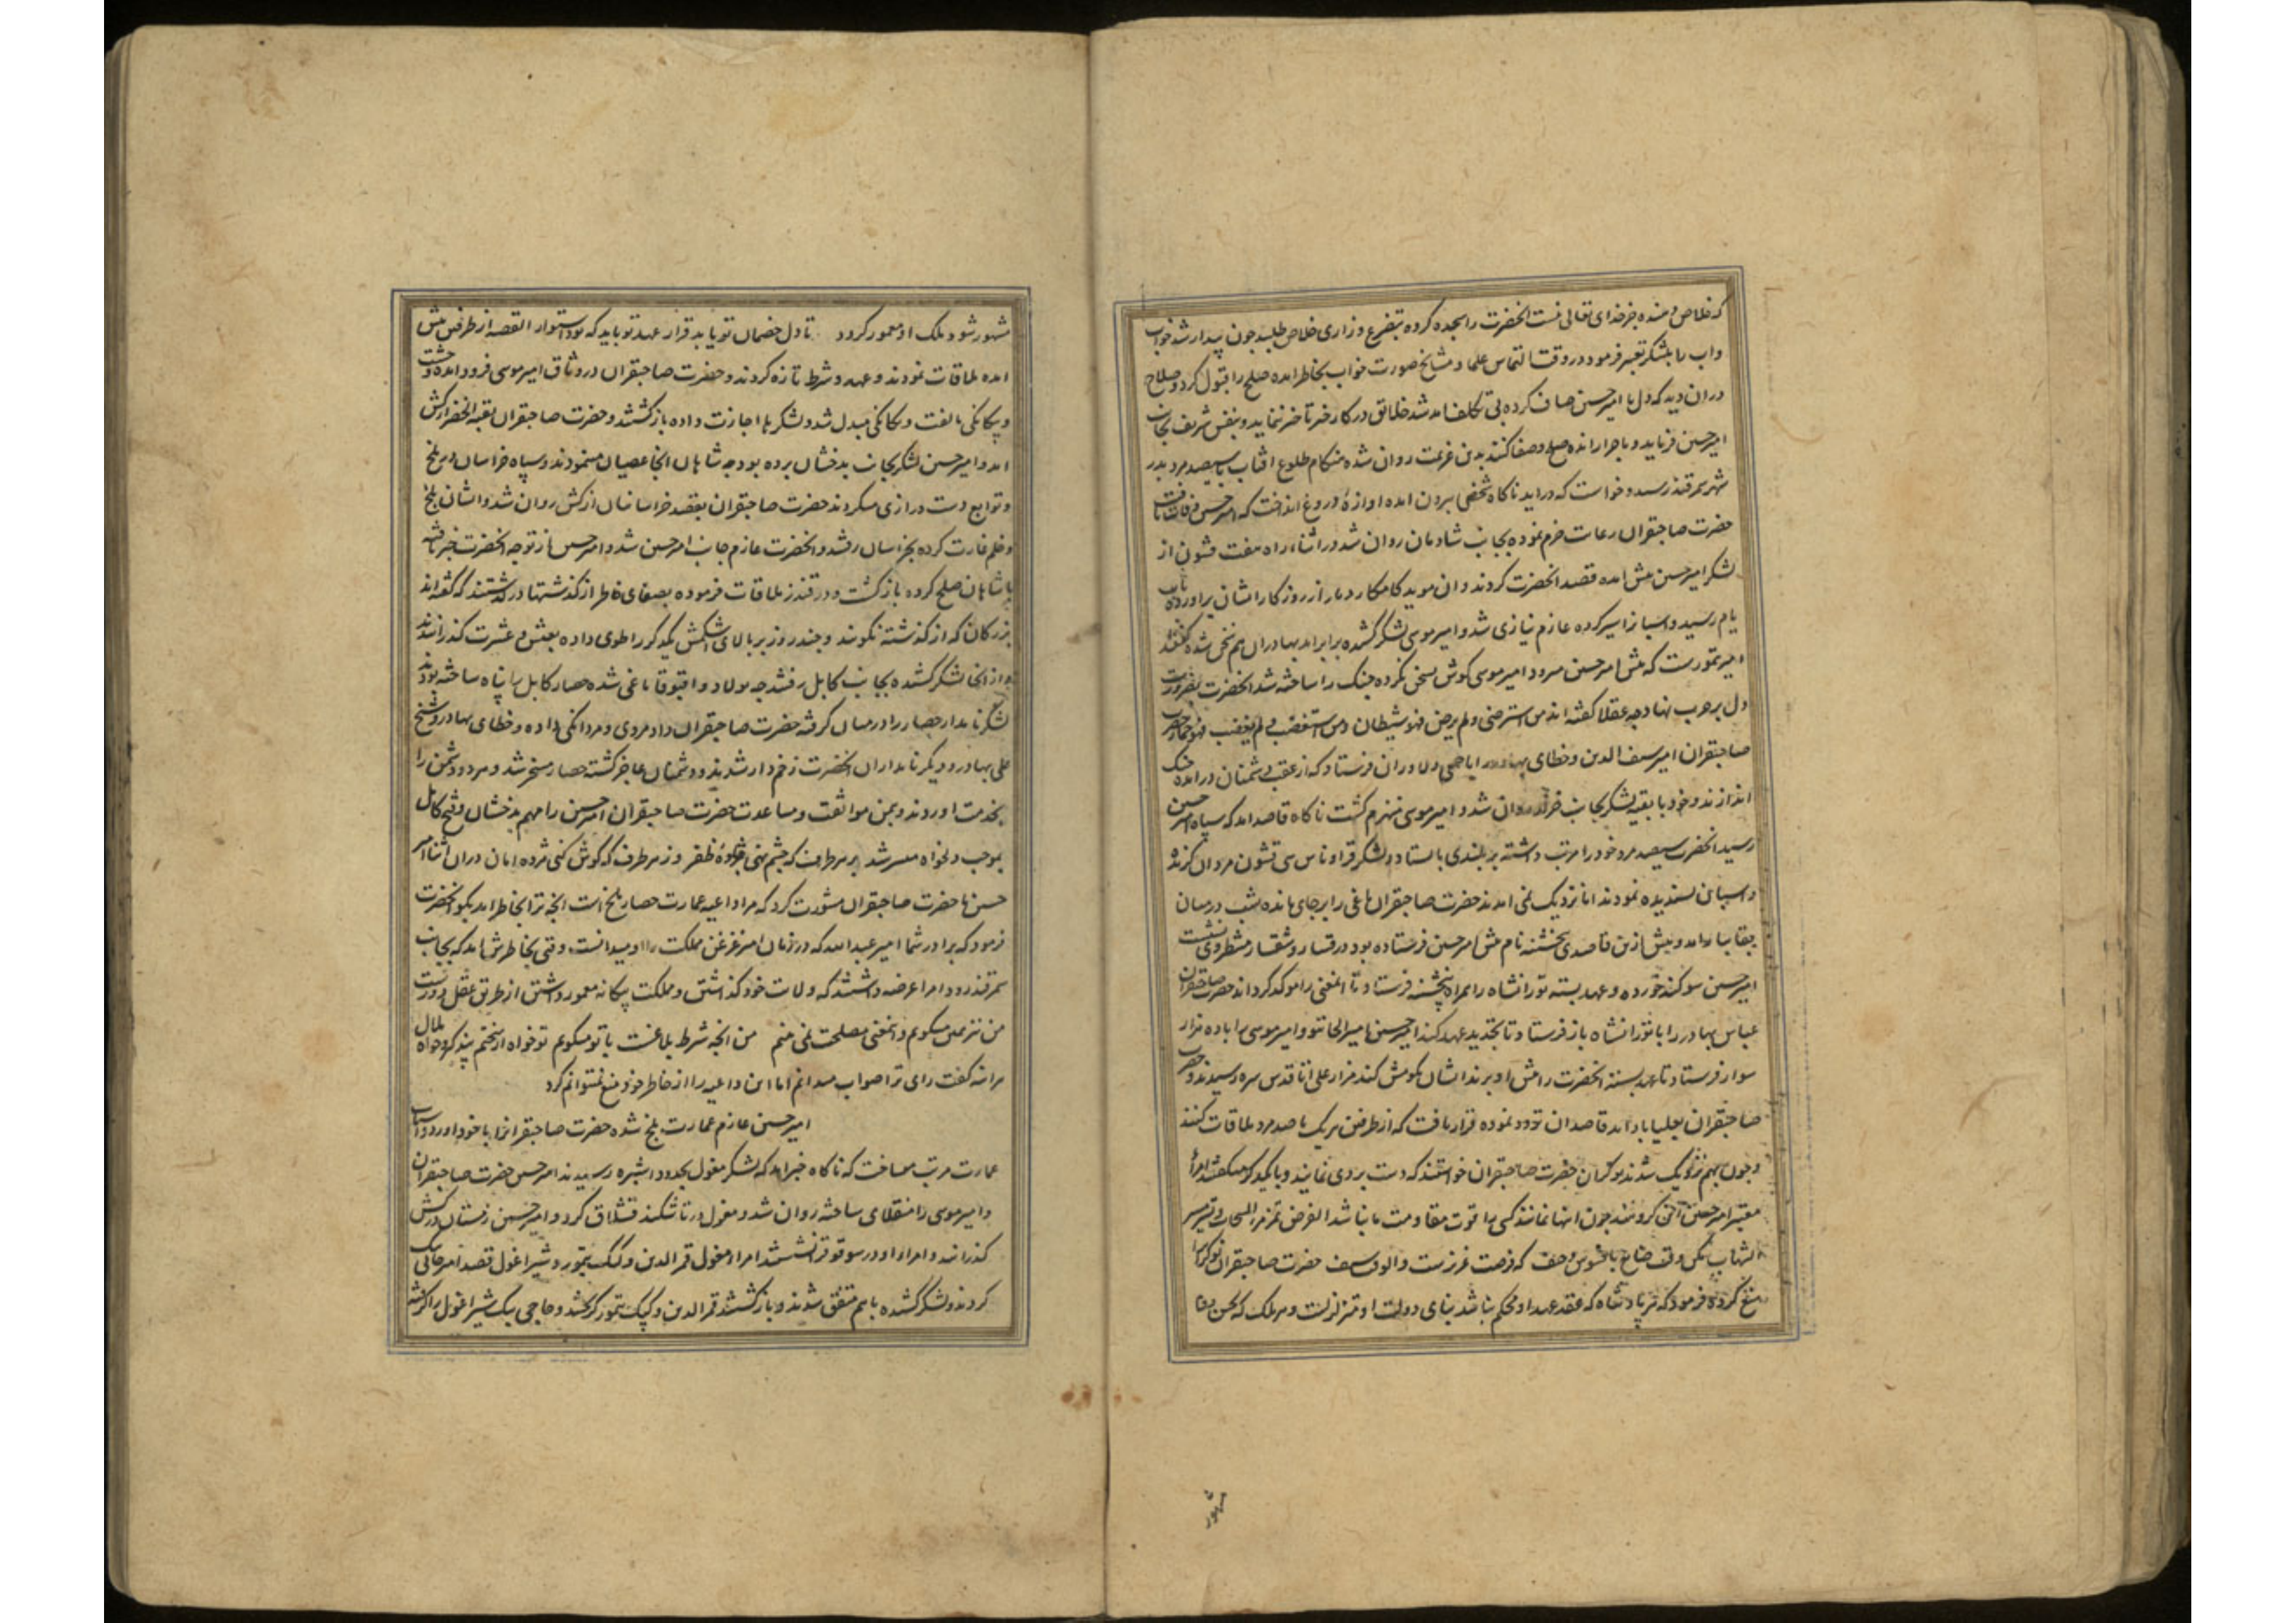 که خلاص دهنده جز خدای تعالی نیست انحضرت را سجده کرده بتضرع و زاری خلاص طلبید چون بیدار شد خواب
و اب را بلشکر تعبیر فرمود در وقت التماس علما و مشایخ صورت خواب بخاطر امده صلح را قبول کرد و صلاح
دران دید که دل با امیر حسین صاف کرده بی تکلف امد شد خلائق در کار خیر تاخیر ننماید و بنفس شریف بجانب
امیر حسین فرماید و ماجرا رانده صلح و صفا کنند بدین عزیمت روان شده هنکام طلوع افتاب با سیصد مرد بدر
شهر سمرقند رسید و خواست که دراید ناکاه شخصی بیرون امده اوازهٔ دروغ انداخت که امیر حسین وفات یافت
حضرت صاحبقران رعایت حزم نموده بجانب شادمان روان شد در اثناء راه هفت قشون از
لشکر امیر حسین پیش امده قصد انحضرت کردند و ان موید کامکار دمار از روزکار ایشان براورده
یام رسید و اسبان اسیر کرده عازم نیازی شد و امیر موسی لشکر کشیده برابر امد بهادران هم سخن شده کفتند
امیر تیمورست که پیش امیر حسین میرود امیر موسی کوش بسخن نکرده جنک را ساخته شد انحضرت بضرورت
دل بر حرب نهاد چه عقلا کفته اند من استرضی و لم یرض فهو شیطان و من استغضب و لم یغضب فهو حمار حضرت
صاحبقران امیر سیف الدین و خطای بهادر ایاجی و دلاوران فرستاد که از عقب دشمنان درامده جنک
اندازند و خود با بقیه لشکر بجانب خزار روان شد و امیر موسی منهزم کشت ناکاه قاصد امد که سپاه امیر حسین
رسید انحضرت سیصد مرد خود را مرتب داشته بر بلندی بایستاد و لشکر قراوناس سی قشون مردان کزیده
و اسبان پسندیده نمودند اما نزدیک نمی امدند حضرت صاحبقران یاغی را بر جای مانده شب در میان
بقابسار امد و پیش ازین قاصدی بخشنه نام پیش امیر حسین فرستاده بود در قسار و شقسار منتظر وی نشست
امیر حسین سوکند خورده و عهد بسته تورانشاه را همراه بخشنه فرستاد تا انمعنی را موکد کرداند حضرت صاحبقران
عباس بهادر را با تورانشاه باز فرستاد تا تجدید عهد کند امیر حسین با میر الجایتو و امیر موسی با ده هزار
سوار فرستاد تا عهد بسته انحضرت را پیش او برند ایشان بکومش کند مزار علی اتا قدس سره رسیدند و حضرت
صاحبقران بعلیاباد امد قاصدان تردد نموده قرار یافت که از طرفین هر یک با صد مرد ملاقات کنند
و چون بهم نزدیک شدند نوکران حضرت صاحبقران خواستند که دست بردی نمایند و با یکدیکر میکفتند امراء
معتبر امیر حسین اکنون کروهند چون اینها نمانند کسی را قوت مقاومت ما نباشد الفرص تمر مر السحاب و تسیر سیر
الشهاب مکن وقت ضایع بافسوس و حیف که فرصت عزیزست والوقت سیف حضرت صاحبقران نوکرانرا
منع کرده فرمود که هر پادشاه که عقد عهد او محکم نباشد بنای دولت او متزلزلست و هر ملک که بحسن وفا
مشهور
مشهور شود ملک او معمور کردد تا دل خصمان تو یابد قرار عهد تو باید که بود استوار القصه از طرفین پیش
امده ملاقات نمودند و عهد و شرط تازه کردند و حضرت صاحبقران در وثاق امیر موسی فرود امده وحشت
و بیکانکی بالفت و یکانکی مبدل شد و لشکرها اجازت داده بازکشتند و حضرت صاحبقران بقبة الخضرا کش
امد و امیر حسین لشکر بجانب بدخشان برده بود چه شاهان انجا عصیان مینمودند و سپاه خراسان در بلخ
و توابع دست درازی میکردند حضرت صاحبقران بقصد خراسانیان از کش روان شد و ایشان بلخ
و خلم غارت کرده بخراسان رفتند و انحضرت عازم جانب امیر حسین شد و امیر حسین از توجه انحضرت خبر یافته
با شاهان صلح کرده بازکشت و در قندز ملاقات فرموده بصفای خاطر از کذشتها درکذشتند که کفته اند
بزرکان که از کذشته نکویند و چند روز بر بالای اشکمش یکدیکر را طوی داده بعیش و عشرت کذرانیدند
و از انجا لشکر کشیده بجانب کابل رفتند چه پولاد و اقبوقا یاغی شده حصار کابل را پناه ساخته بودند
لشکر نامدار حصار را در میان کرفته حضرت صاحبقران داد مردی و مردانکی داده و خطای بهادر و شیخ
علی بهادر و دیکر نامداران انحضرت زخم دار شدند و دشمنان عاجز کشته حصار مسخر شد و هر دو دشمن را
بخدمت اوردند و بیمن موافقت و مساعدت حضرت صاحبقران امیر حسین را مهم بدخشان و فتح کابل
بموجب دلخواه میسر شد بر هر طرف که چشم نهی جلوهٔ ظفر وز هر طرف که کوش کنی مژده امان دران اثنا امیر
حسین با حضرت صاحبقران مشورت کرد که مرا داعیه عمارت حصار بلخ است انچه ترا بخاطر اید بکو انحضرت
فرمود که برادر شما امیر عبدالله که در زمان امیر قزغن مملکت را او میدانست وقتی بخاطرش امد که بجانب
سمرقند رود امرا عرضه داشتند که ولایت خود کذاشتن و مملکت بیکانه معمور داشتن از طریق عقل دورست
من نیز همین میکویم و انمعنی مصلحت نمی بینم من انچه شرط بلاغست با تو میکویم تو خواه از سخنم پند کیر و خواه ملال
میرانه کفت رای ترا صواب میدانم اما این داعیه را از خاطر خود منع نمیتوانم کرد
امیر حسین عازم عمارت بلخ شده حضرت صاحبقرانرا با خود اورد و اسباب
عمارت مرتب میساخت که ناکاه خبر امد که لشکر مغول بحدود اشپره رسیدند امیر حسین حضرت صاحبقران
و امیر موسی را منقلای ساخته روان شد و مغول در تاشکند قشلاق کرد و امیر حسین زمستان در کش
کذرانید و امراء او در سوقوقز نشستند امراء مغول قمر الدین و کپک تیمور و شیراغول قصد امیر حاجی بیک
کردند و لشکر کشیده با هم متفق شدند و بازکشتند قمر الدین و کپک تیمور کریختند و حاجی بیک شیراغول را کرفته